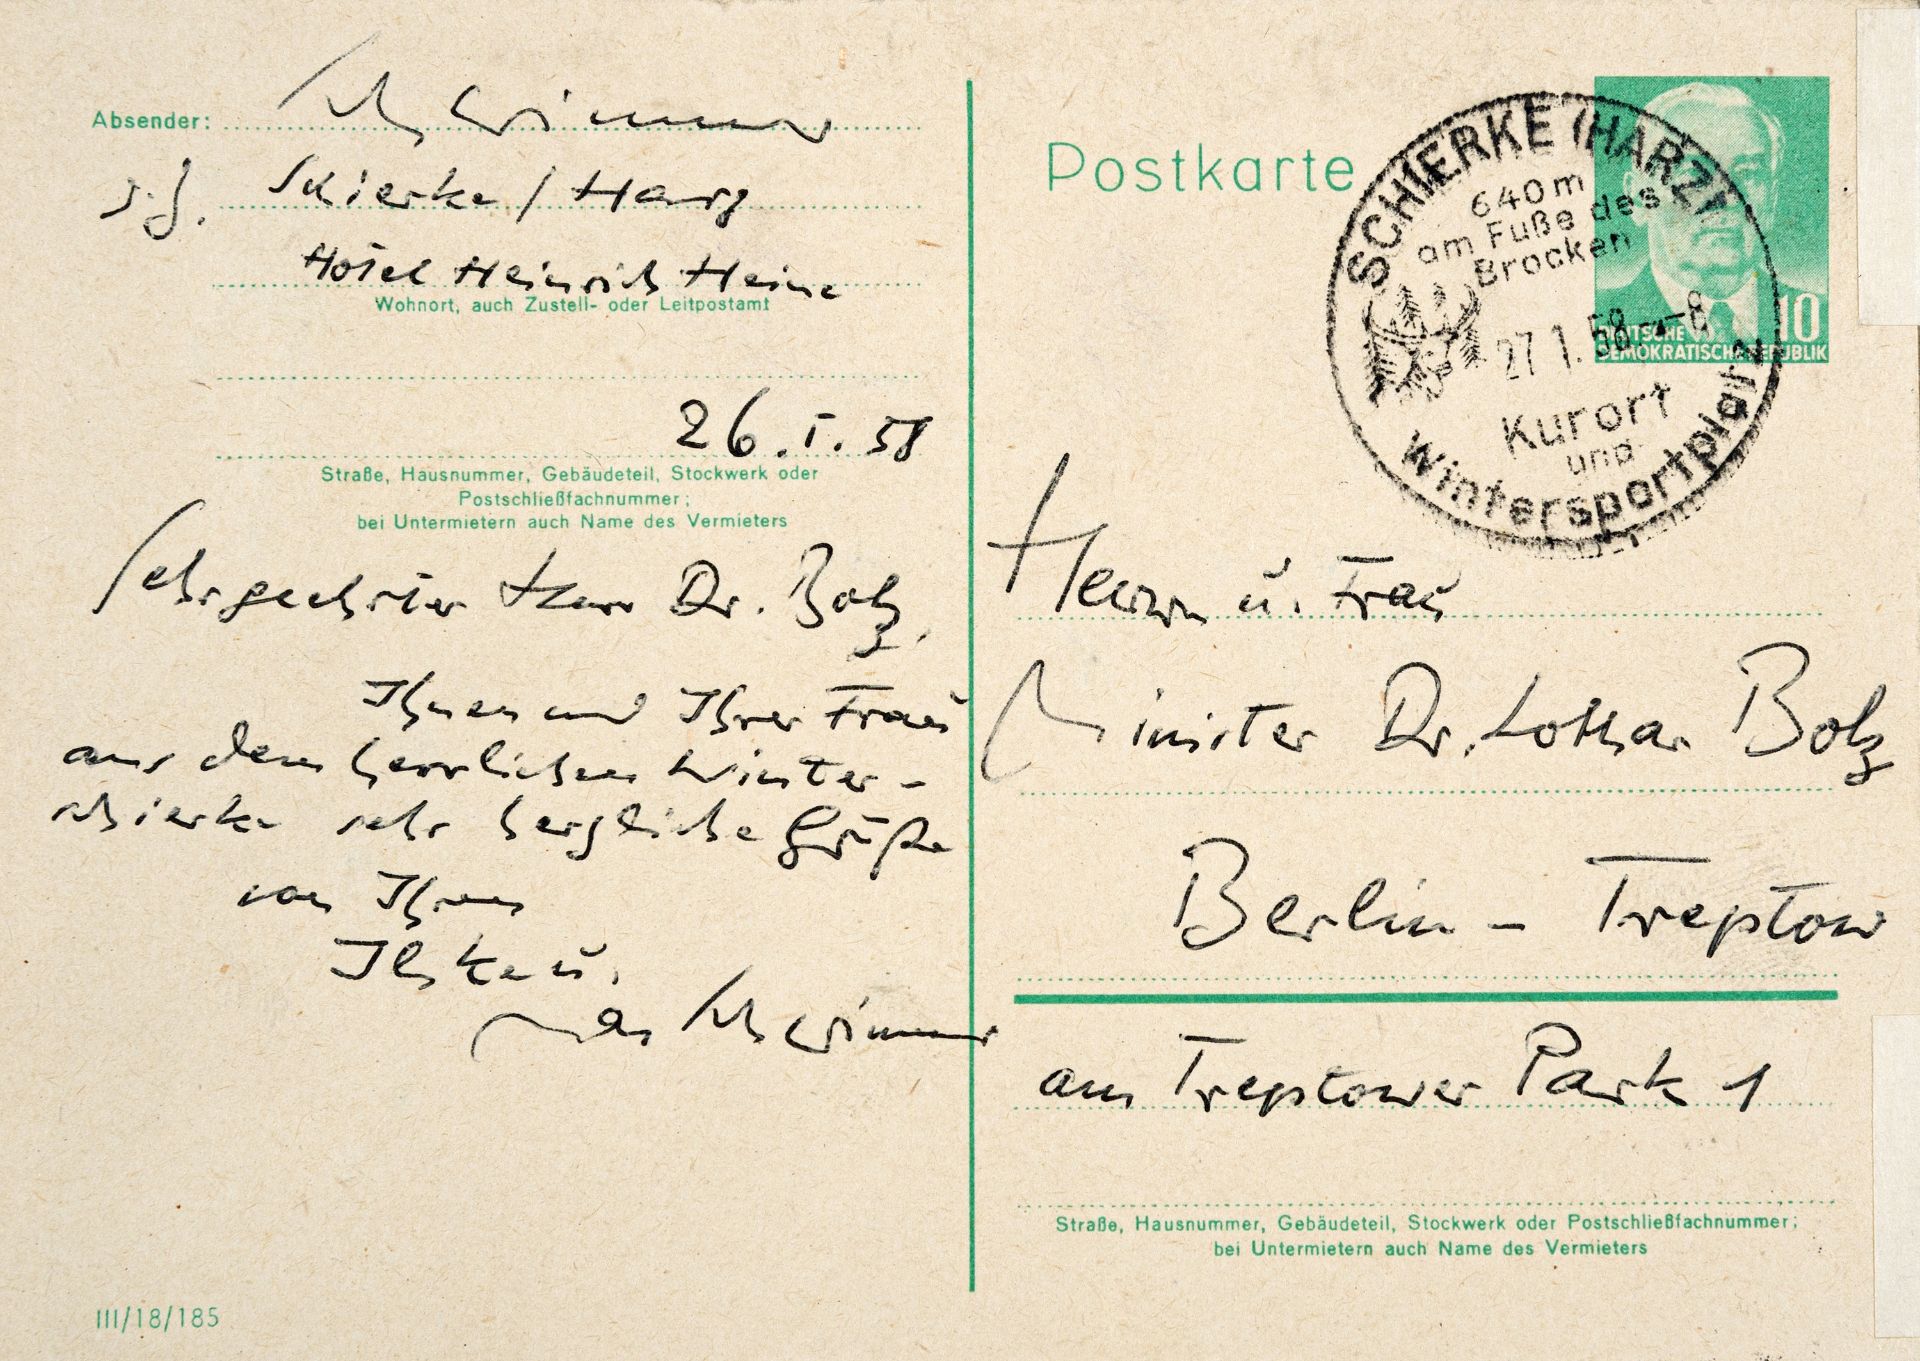 Absender: Schwimmer
z. Z. Schierke / Harz
Hotel Heinrich Heine
Wohnort, auch Zustell- oder Leitpostamt
26. I. 58
Straße, Hausnummer, Gebäudeteil, Stockwerk oder
Postschließfachnummer;
bei Untermietern auch Name des Vermieters
Sehrgeehrter Herr Dr. Bolz,
Ihnen und Ihrer Frau
aus dem herrlichen Winter-
schierke sehr herzliche Grüße
von Ihren
Ilske u.
Max Schwimmer
III/18/185
Postkarte
SCHIERKE (HARZ)
640m
am Fuße des
Brocken
27.1.58.--8
Kurort
und
Wintersportplatz
10
DEUTSCHE
DEMOKRATISCHE REPUBLIK
Herrn u. Frau
Minister Dr. Lothar Bolz
Berlin - Treptow
am Treptower Park 1
Straße, Hausnummer, Gebäudeteil, Stockwerk oder Postschließfachnummer;
bei Untermietern auch Name des Vermieters